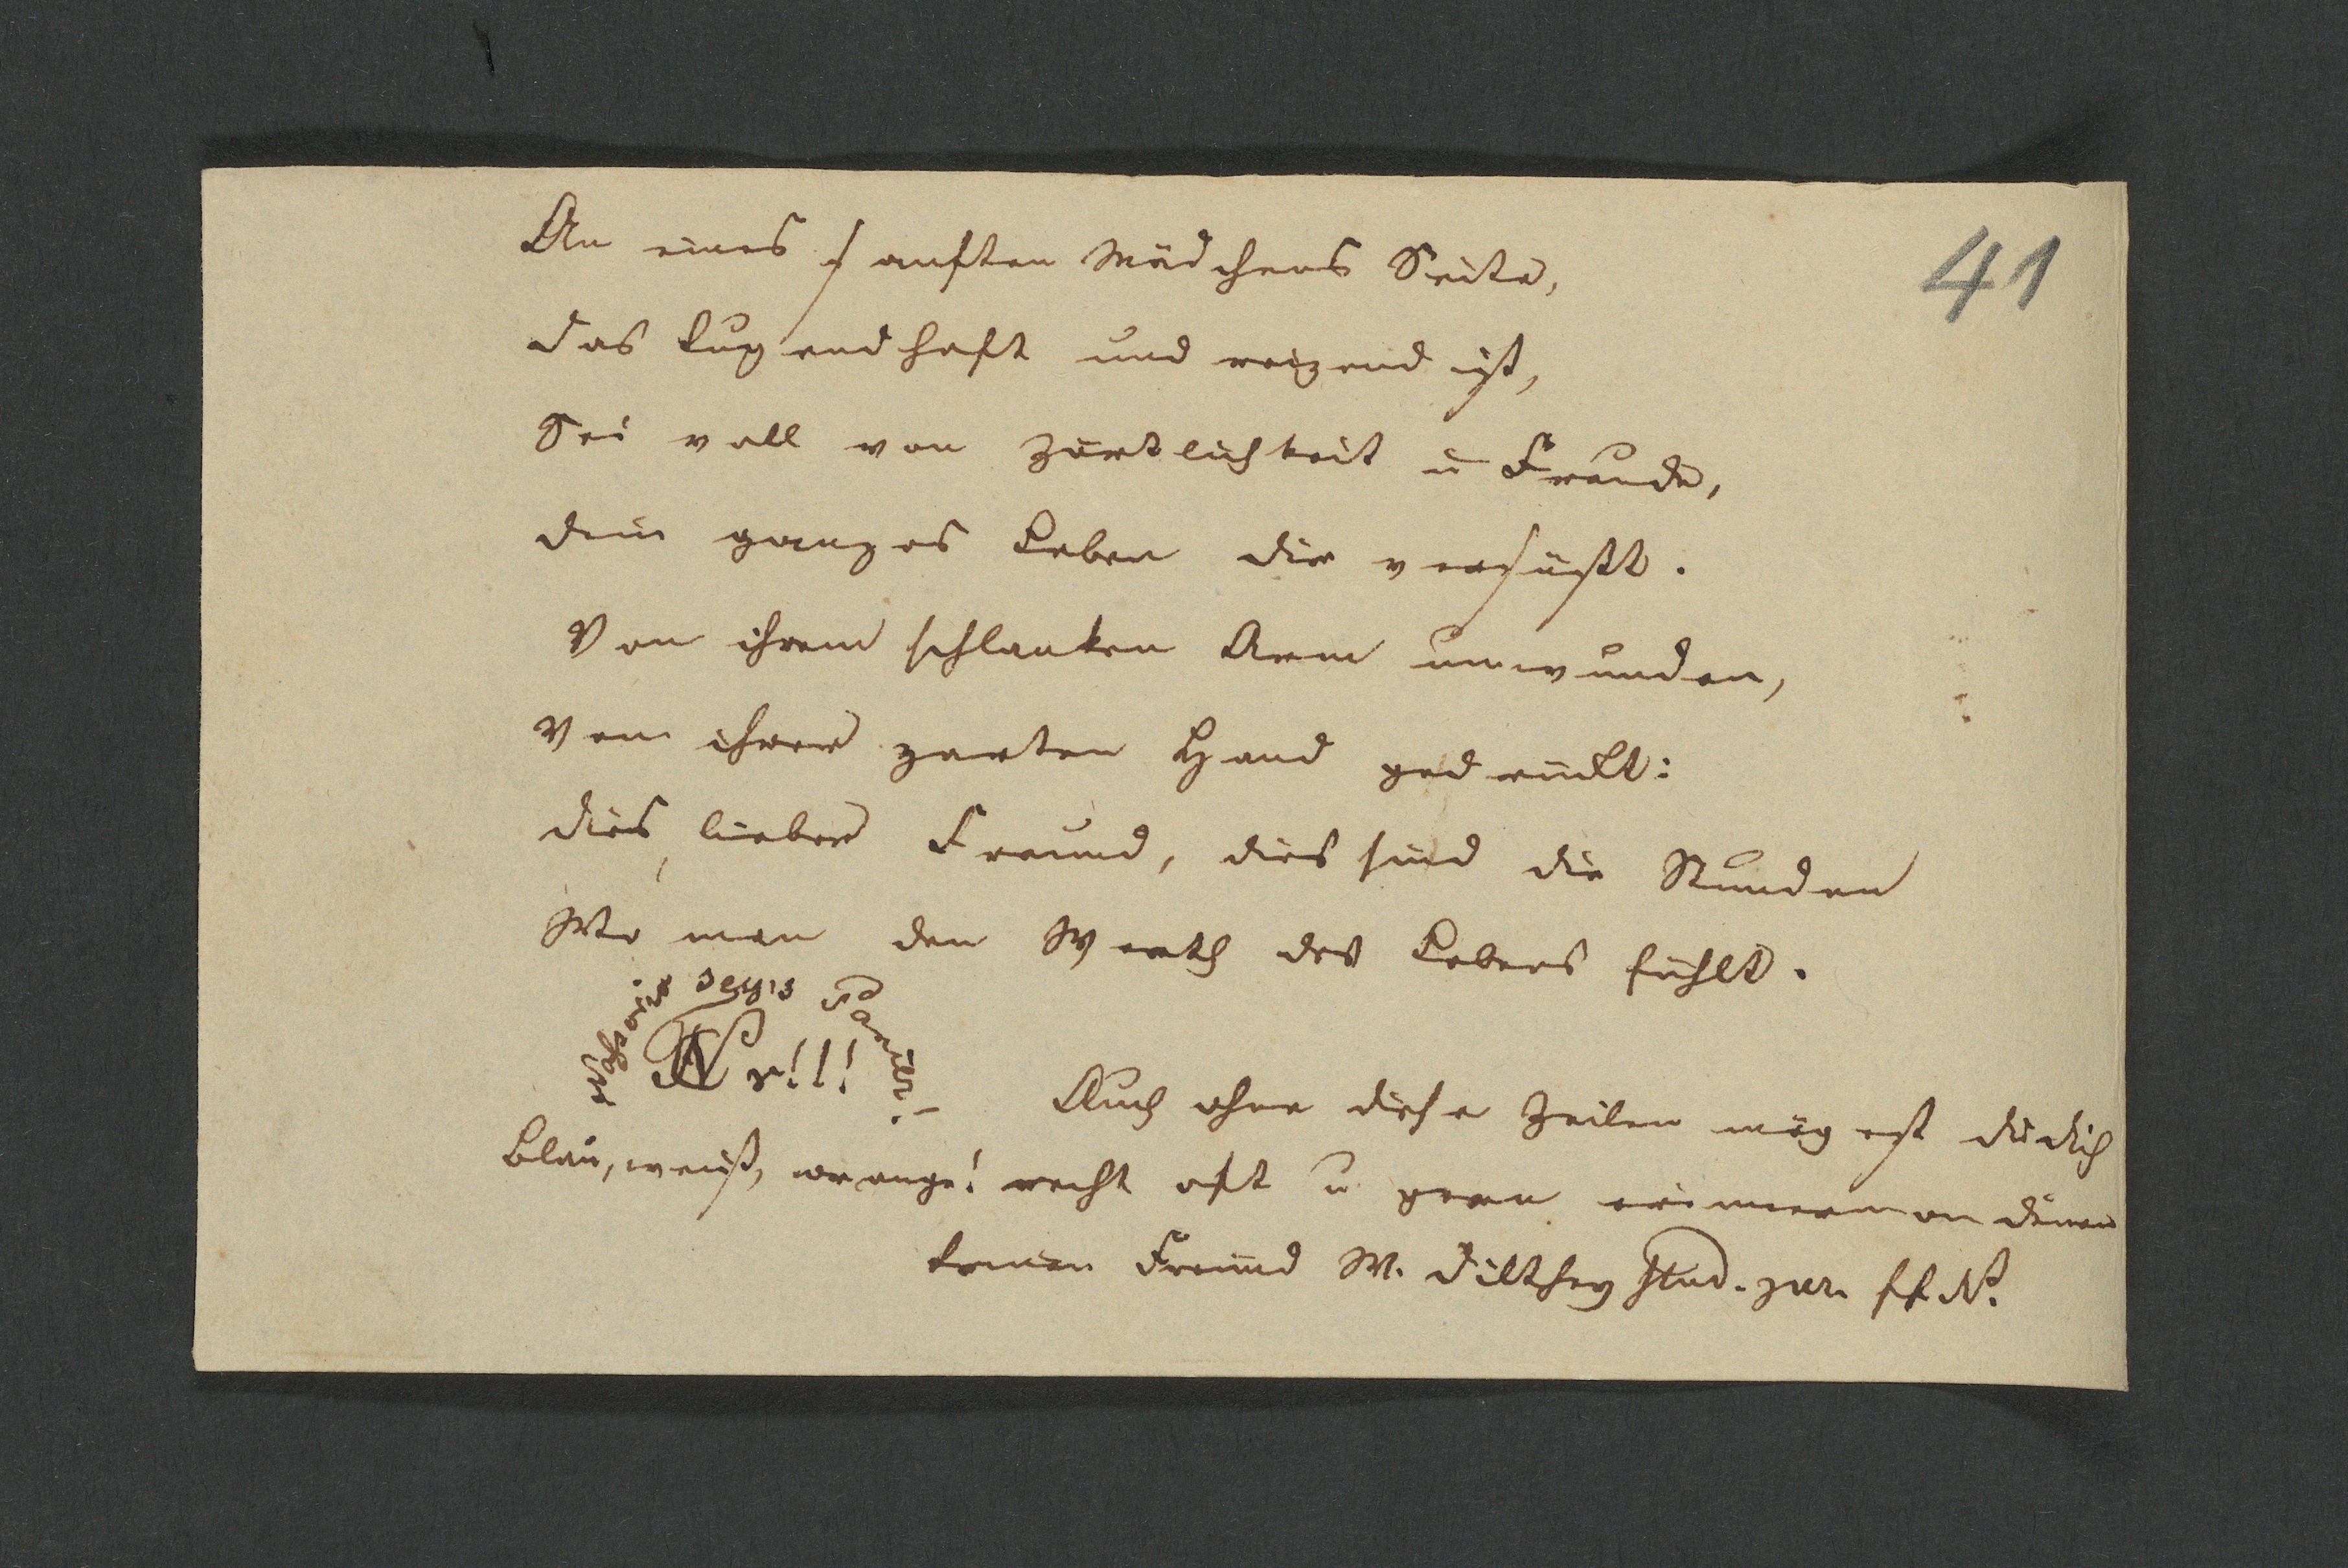 41
An eines sanften Mädchens Seite,
das tugendhaft und reizend ist,
Sei voll von Zärtlichkeit u Freude,
dein ganzes Leben dir versüßt.
Von ihrem schlanken Arm umwunden,
Von ihrer zarten Hand gedrückt:
dies, lieber Freund, dies sind die Stunden
Wo man den Werth des Lebens fühlt.
seyis
N !!!
Auch ohne diese Zeilen mögest du dich
Blau, weiß, orange! recht oft u gern erinnern an deinen
treuen Freund W. Dilthey Stud.